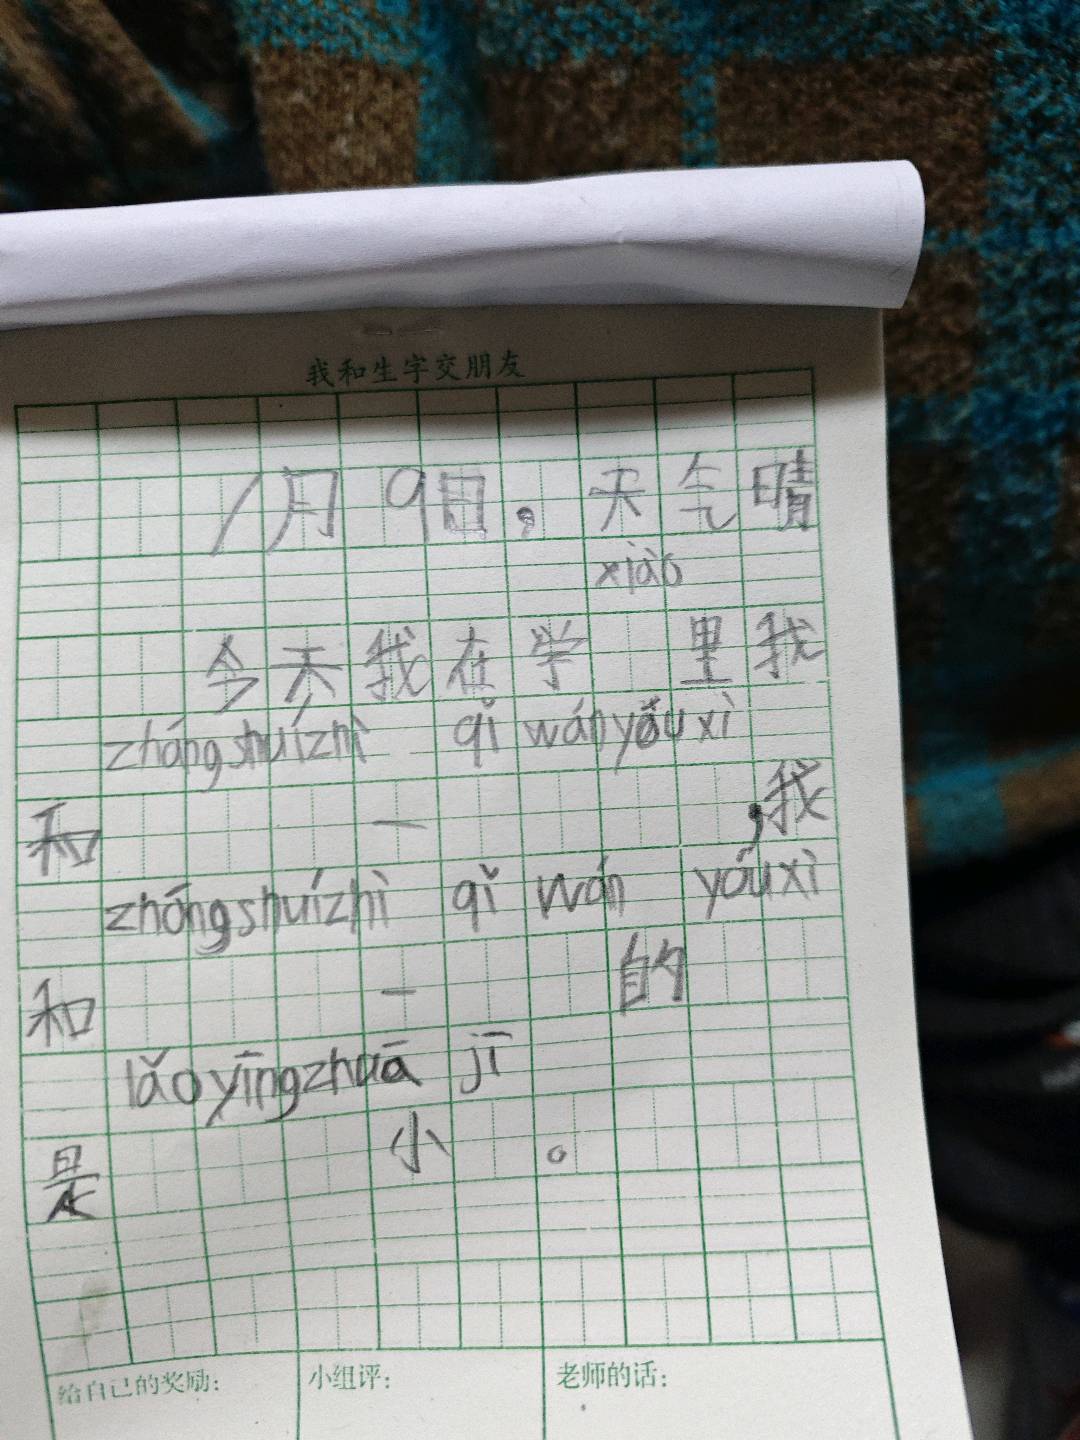 我和生字交朋友
1月9日，天气晴
xiào
今天我在学 里我
zhángshuízhì qǐ wányóuxì
和 一 ，我
zhóngshuízhì qǐ wán yóuxì
和 一 的
lǎoyīngzhuā jī
是 小 。
给自己的奖励： 小组评： 老师的话：